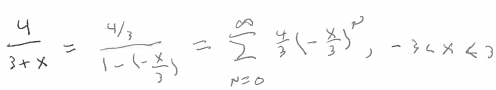 \frac{4}{3+x} = \frac{4/3}{1-(-\frac{x}{3})} = \sum_{n=0}^{\infty} \frac{4}{3}(-\frac{x}{3})^n, -3<x<3